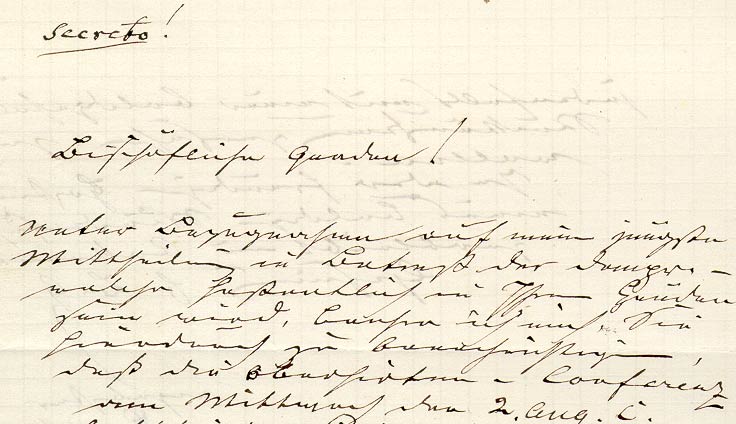 secreto!
Bischöfliche Gnaden!
unter Bezugnahme auf mein jüngste
Mittheilung in Betreff der
welche hoffentlich in Ihren Händen
sein wird, beehre ich mich, Sie
hierdurch zu benachrichtigen,
daß die Oberhirten-Conferenz
am Mittwoch den 2. Aug. c.